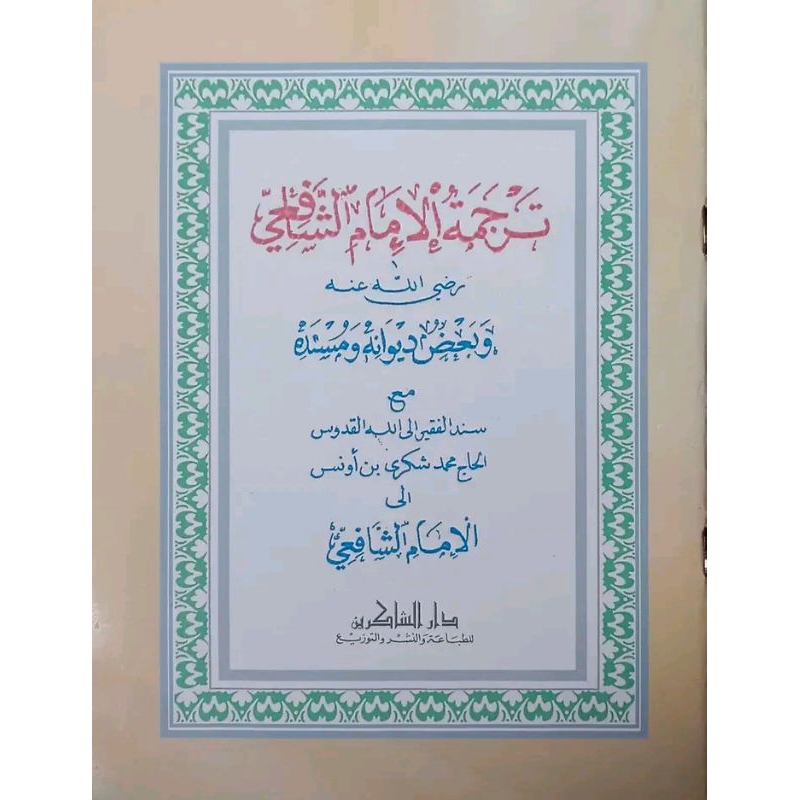 تَرْجَمَةُ الْإِمَامِ الشَّافِعِيِّ
رضي الله عنه
وَبَعْضُ دِيْوَانِهِ وَمُسْنَدِهِ
مع
سند الفقير إلى الله القدوس
الحاج محمد شكري بن أونس
الى
الْإِمَامِ الشَّافِعِيِّ
دار الشاكرين
للطباعة والنشر والتوزيع